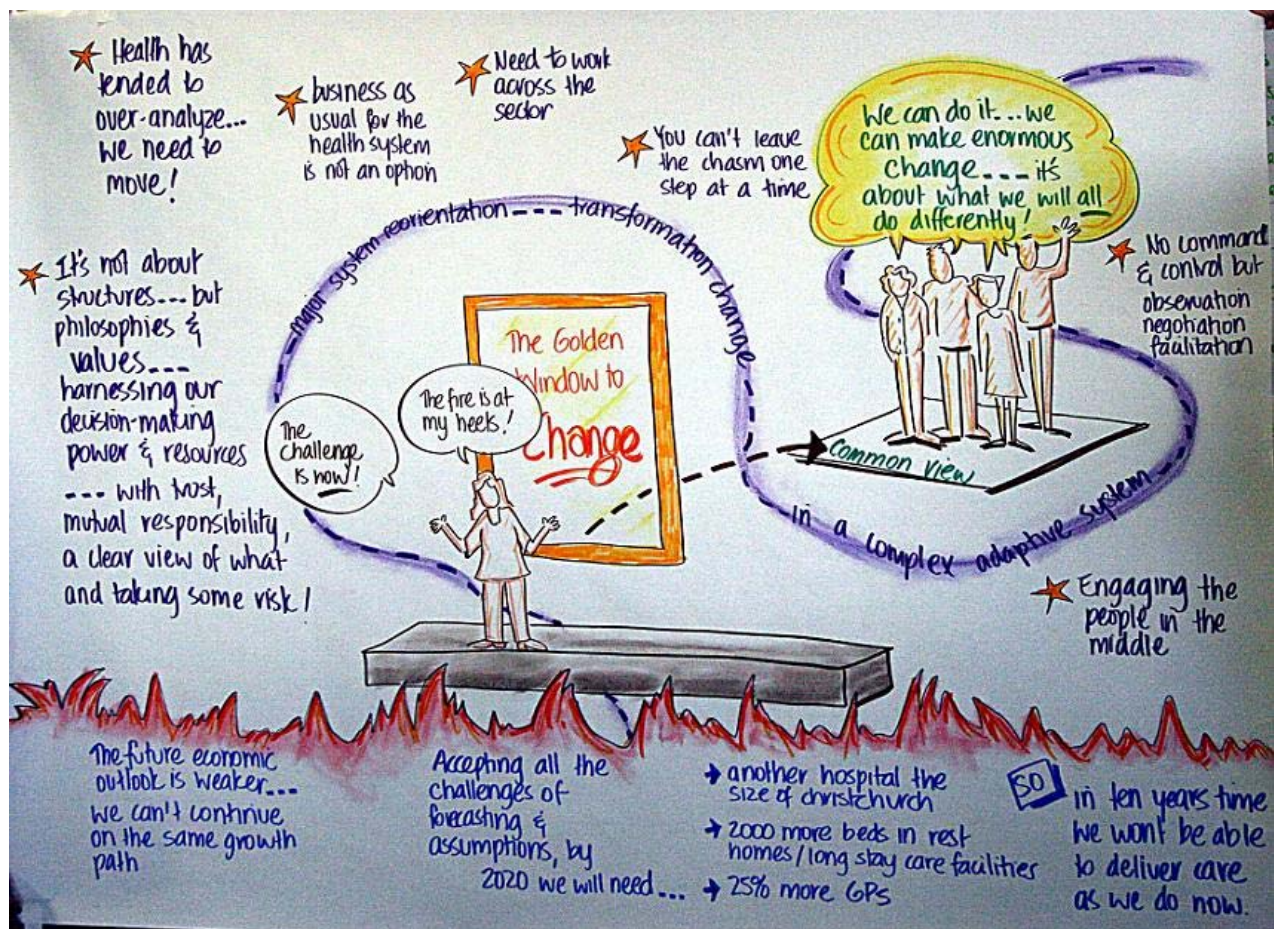 Health has
tended to
over-analyze...
we need to
move!
business as
usual for the
health system
is not an option
Need to work
across the
sector
You can't leave
the chasm one
step at a time
We can do it...we
can make enormous
change--- it's
about what we will all
do differently!
No command
& control but
observation
negotiation
facilitation
It's not about
structures--- but
philosophies &
values---
harnessing our
decision-making
power & resources
--- with trust,
mutual responsibility,
a clear view of what
and taking some risk!
major system reorientation --- transformation change
in a complex adaptive system
The Golden
Window to
Change
The fire is at
my heels!
The
challenge
is now!
common view
Engaging the
people in the
middle
The future economic
outlook is weaker...
we can't continue
on the same growth
path
Accepting all the
challenges of
forecasting &
assumptions, by
2020 we will need...
→ another hospital the
size of christchurch
→ 2000 more beds in rest
homes/long stay care facilities
→ 25% more GPs
SO
in ten years time
we wont be able
to deliver care
as we do now.